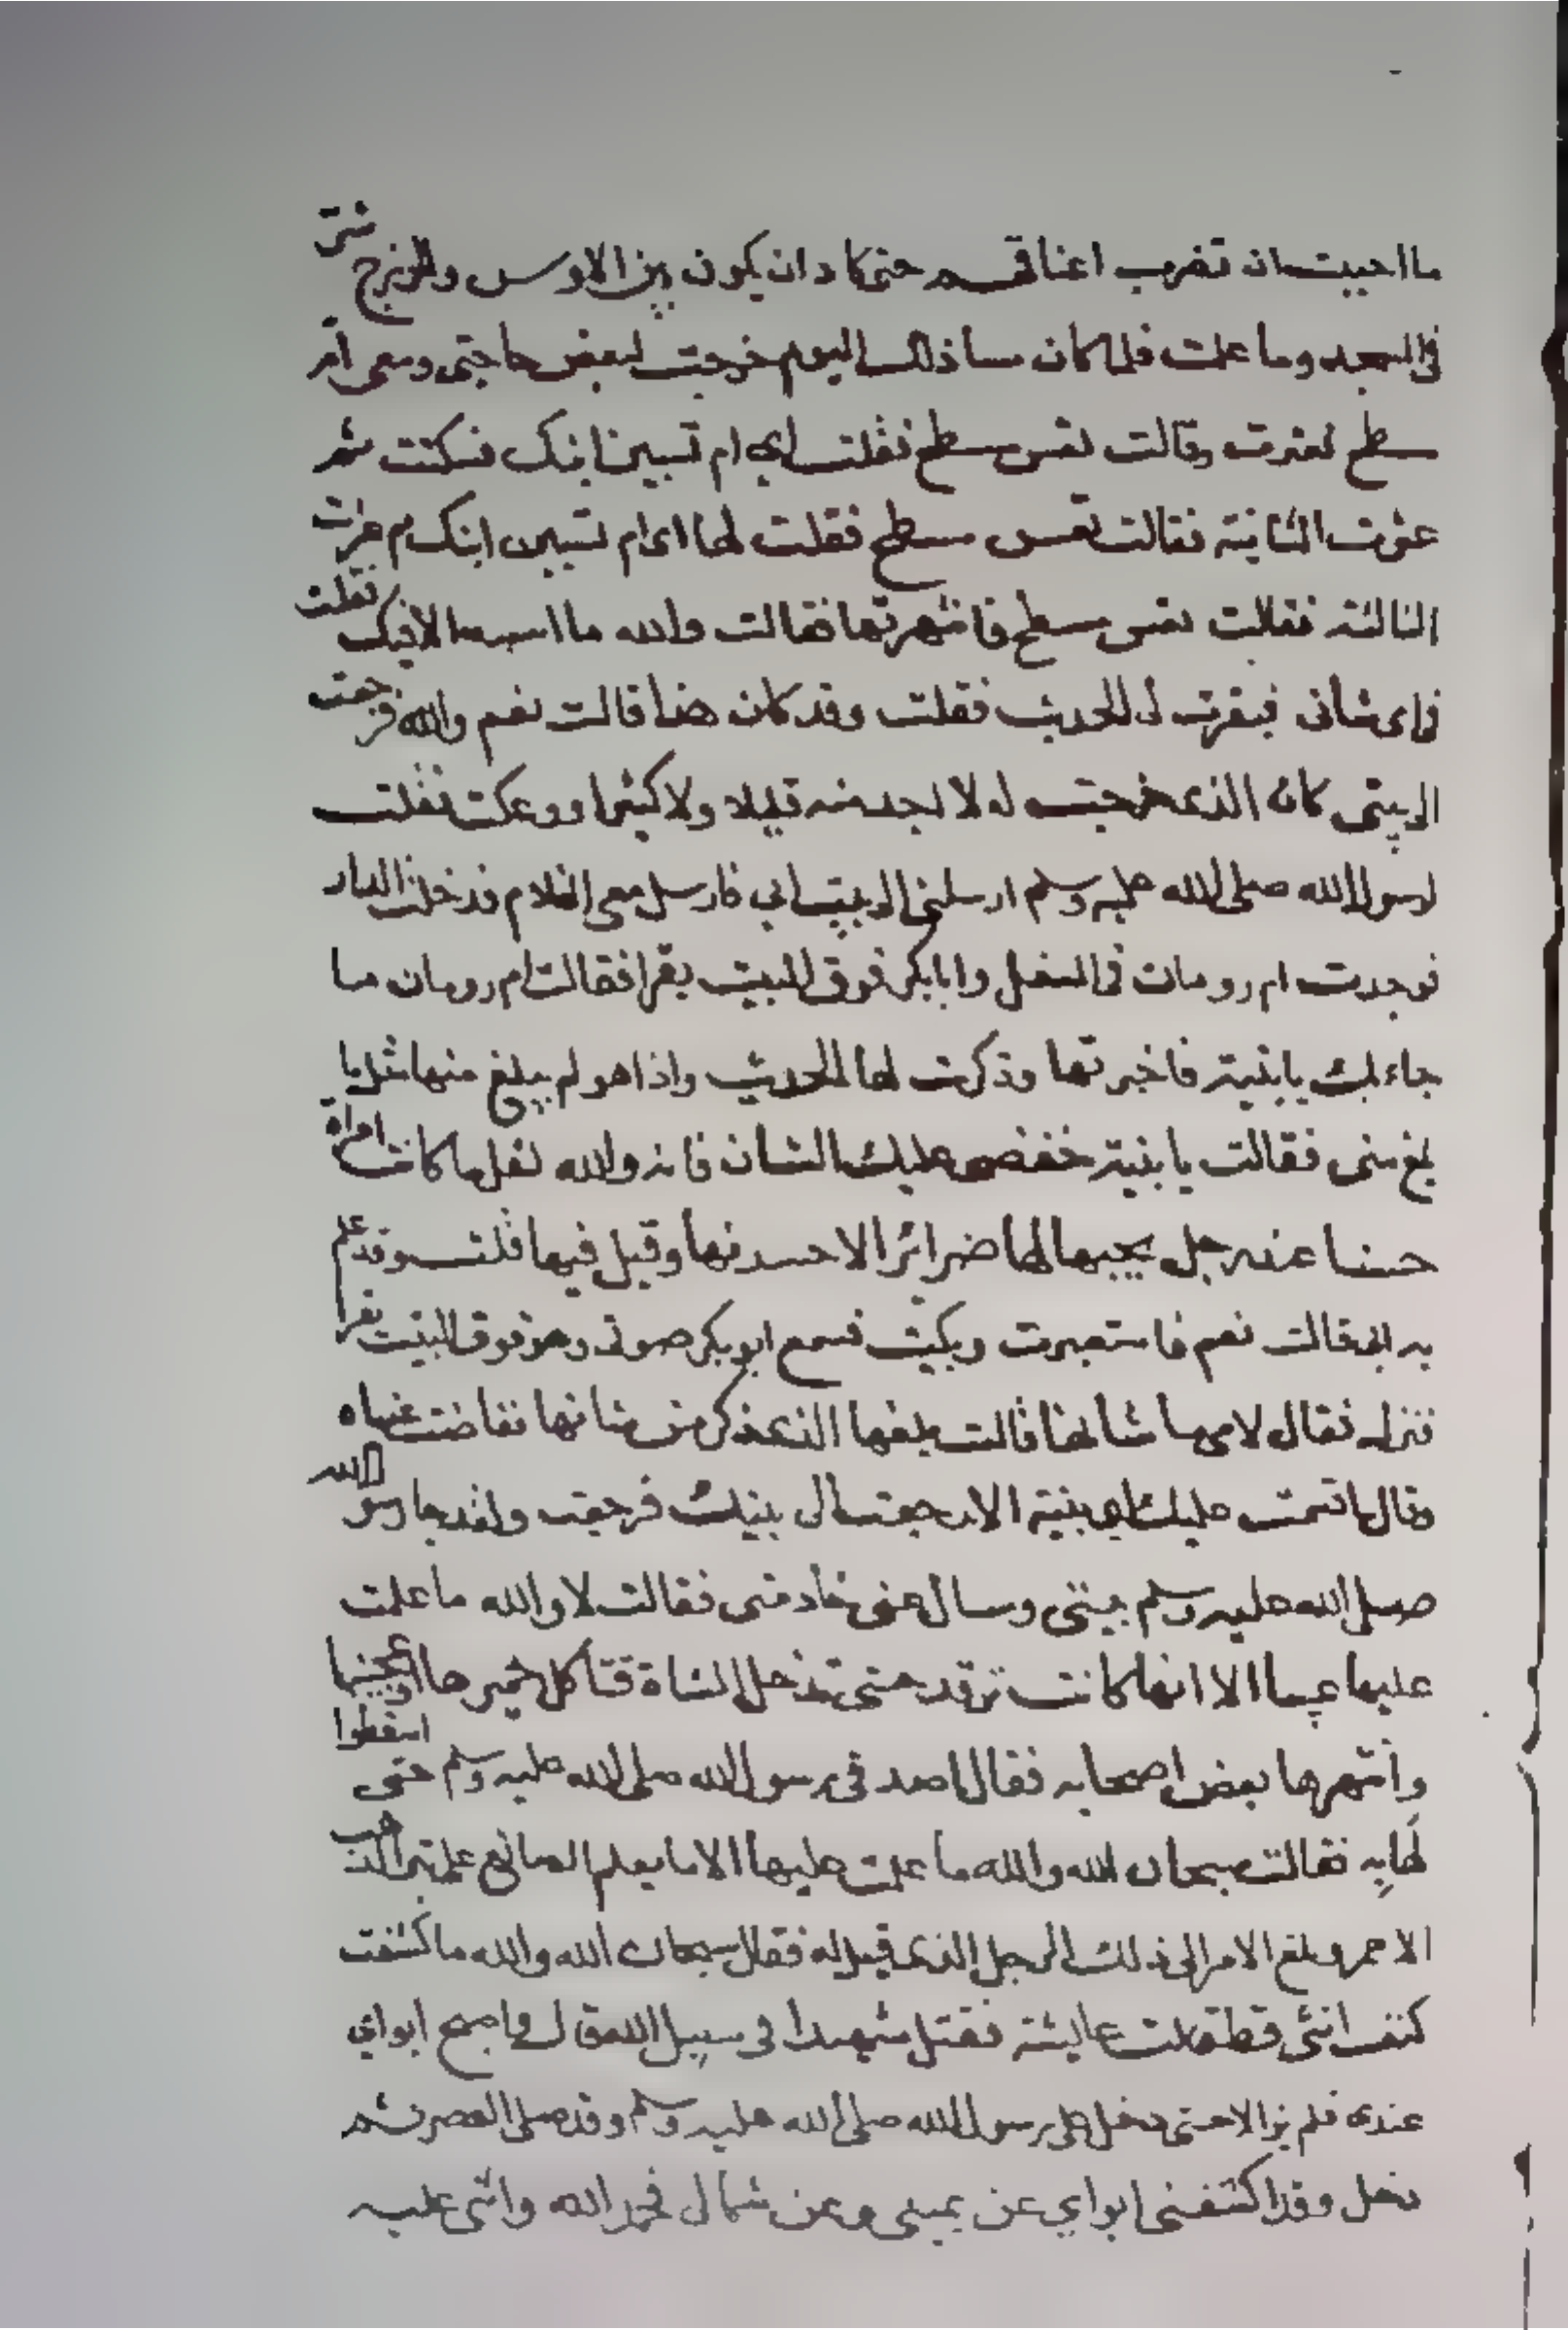 ما احببت ان تضرب اعناقهم حتى كاد ان يكون بين الاوس والخزرج شر
في المسجد وما علمت فلما كان مسا ذلك اليوم خرجت لبعض حاجتي ومعي ام
مسطح فعثرت وقالت تعس مسطح فقلت اي ام تسبين ابنك فسكتت ثم
عثرت الثانية فقالت تعس مسطح فقلت لها اي ام تسبين ابنك ثم عثرت
الثالثة فقالت تعس مسطح فانتهرتها فقالت والله ما اسبه الا فيك فقلت
في اي شاني فبقرت لي الحديث فقلت وقد كان هذا قالت نعم والله فرجعت
الى بيتي كان الذي خرجت له لا اجد منه قليلا ولا كثيرا ووعكت فقلت
لرسول الله صلى الله عليه وسلم ارسلني الى بيت ابي فارسل معي الغلام فدخلت الدار
فوجدت ام رومان في السفل وابا بكر فوق البيت يقرا فقالت ام رومان ما
جاء بك يا بنية فاخبرتها وذكرت لها الحديث واذا هو لم يبلغ منها مثل ما
بلغ مني فقالت يا بنية خفضي عليك الشان فانه والله لقل ما كانت امراة
حسنا عند رجل يحبها لها ضرائر الا حسدنها وقيل فيها قلت وقد علم
به ابي قالت نعم فاستعبرت وبكيت فسمع ابو بكر صوتي وهو فوق البيت يقرا
فنزل فقال لامي ما شانها قالت بلغها الذي ذكر من شانها ففاضت عيناه
وقال اقسمت عليك اي بنية الا رجعت الى بيتك فرجعت ولقد جا رسول الله
صلى الله عليه وسلم بيتي وسال عني خادمتي فقالت لا والله ما علمت
عليها عيبا الا انها كانت ترقد حتى تدخل الشاة فتاكل خميرها او عجينها
وانتهرها بعض اصحابه فقال اصدقي رسول الله صلى الله عليه وسلم حتى اسقطوا
لها به فقالت سبحان الله والله ما علمت عليها الا ما يعلم الصائغ على تبر الذهب
الاحمر وبلغ الامر الى ذلك الرجل الذي قيل له فقال سبحان الله والله ما كشفت
كنف انثى قط قالت عايشة فقتل شهيدا في سبيل الله قال واصبح ابواي
عندي فلم يزالا حتى دخل علي رسول الله صلى الله عليه وسلم وقد صلى العصر ثم
دخل وقد اكتنفني ابواي عن يميني وعن شمالي فحمد الله واثنى عليه